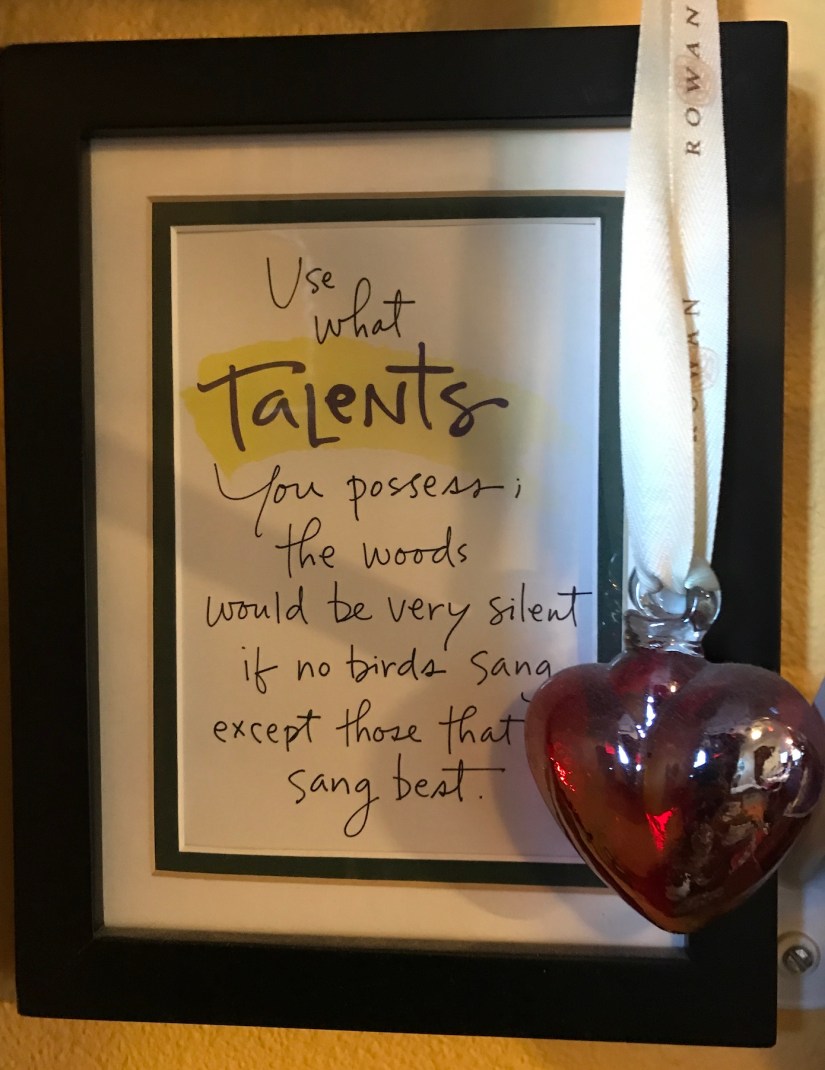 Use
what
Talents
You possess;
the woods
would be very silent
if no birds sang
except those that
sang best.
ROWAN
ROWAN